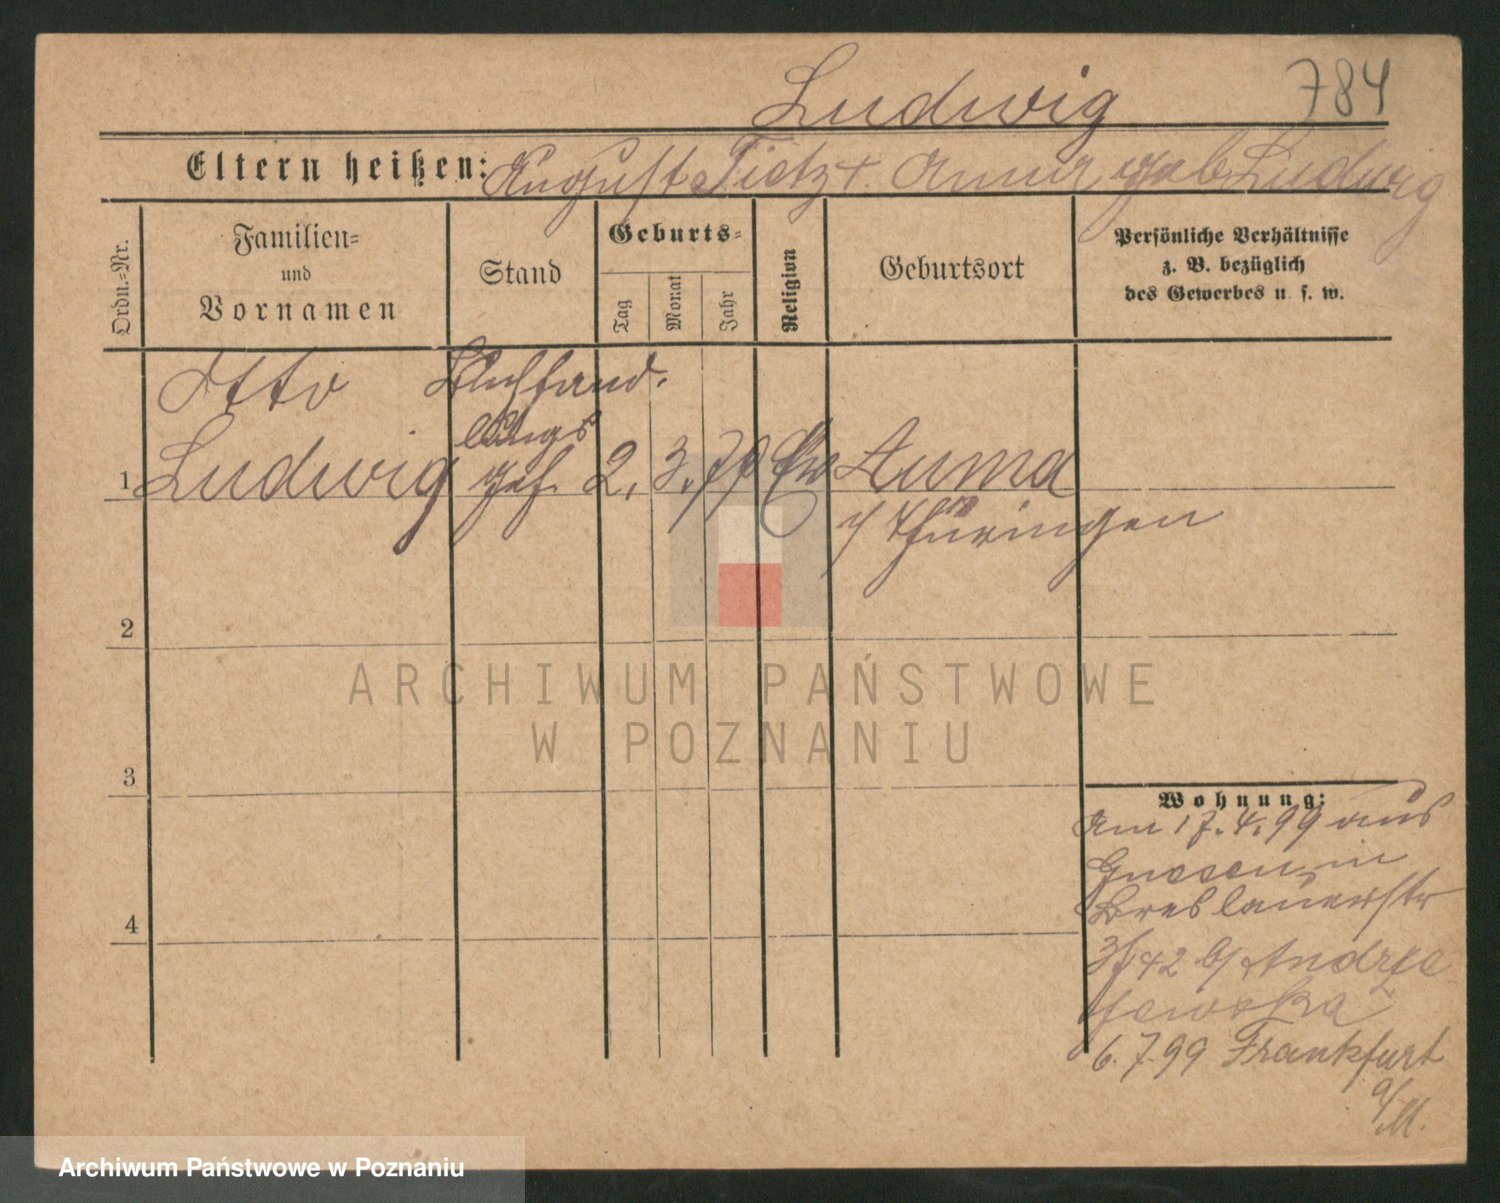 Ludwig 784
Eltern heißen: August Tietz + Anna geb Ludwig
Ordn.=Nr.
Familien=
und
Vornamen
Stand
Geburts=
Tag
Monat
Jahr
Religion
Geburtsort
Persönliche Verhältnisse
z. B. bezüglich
des Gewerbes u. s. w.
Otto Buchhand.
lungs
1 Ludwig geh. 2. 3. 79 Ev Auma
i/ Thüringen
2
3
4
Wohnung:
Am 17.4.99 aus
Gnesen in
Breslauerstr
42 b/ Andrze
jewska
6.7.99 Frankfurt
a/M.
ARCHIWUM PAŃSTWOWE
W POZNANIU
Archiwum Państwowe w Poznaniu